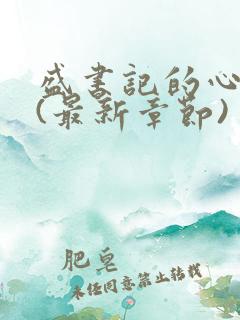 盛書記的心
(最新章節)
肥皂
未任同意禁止转载